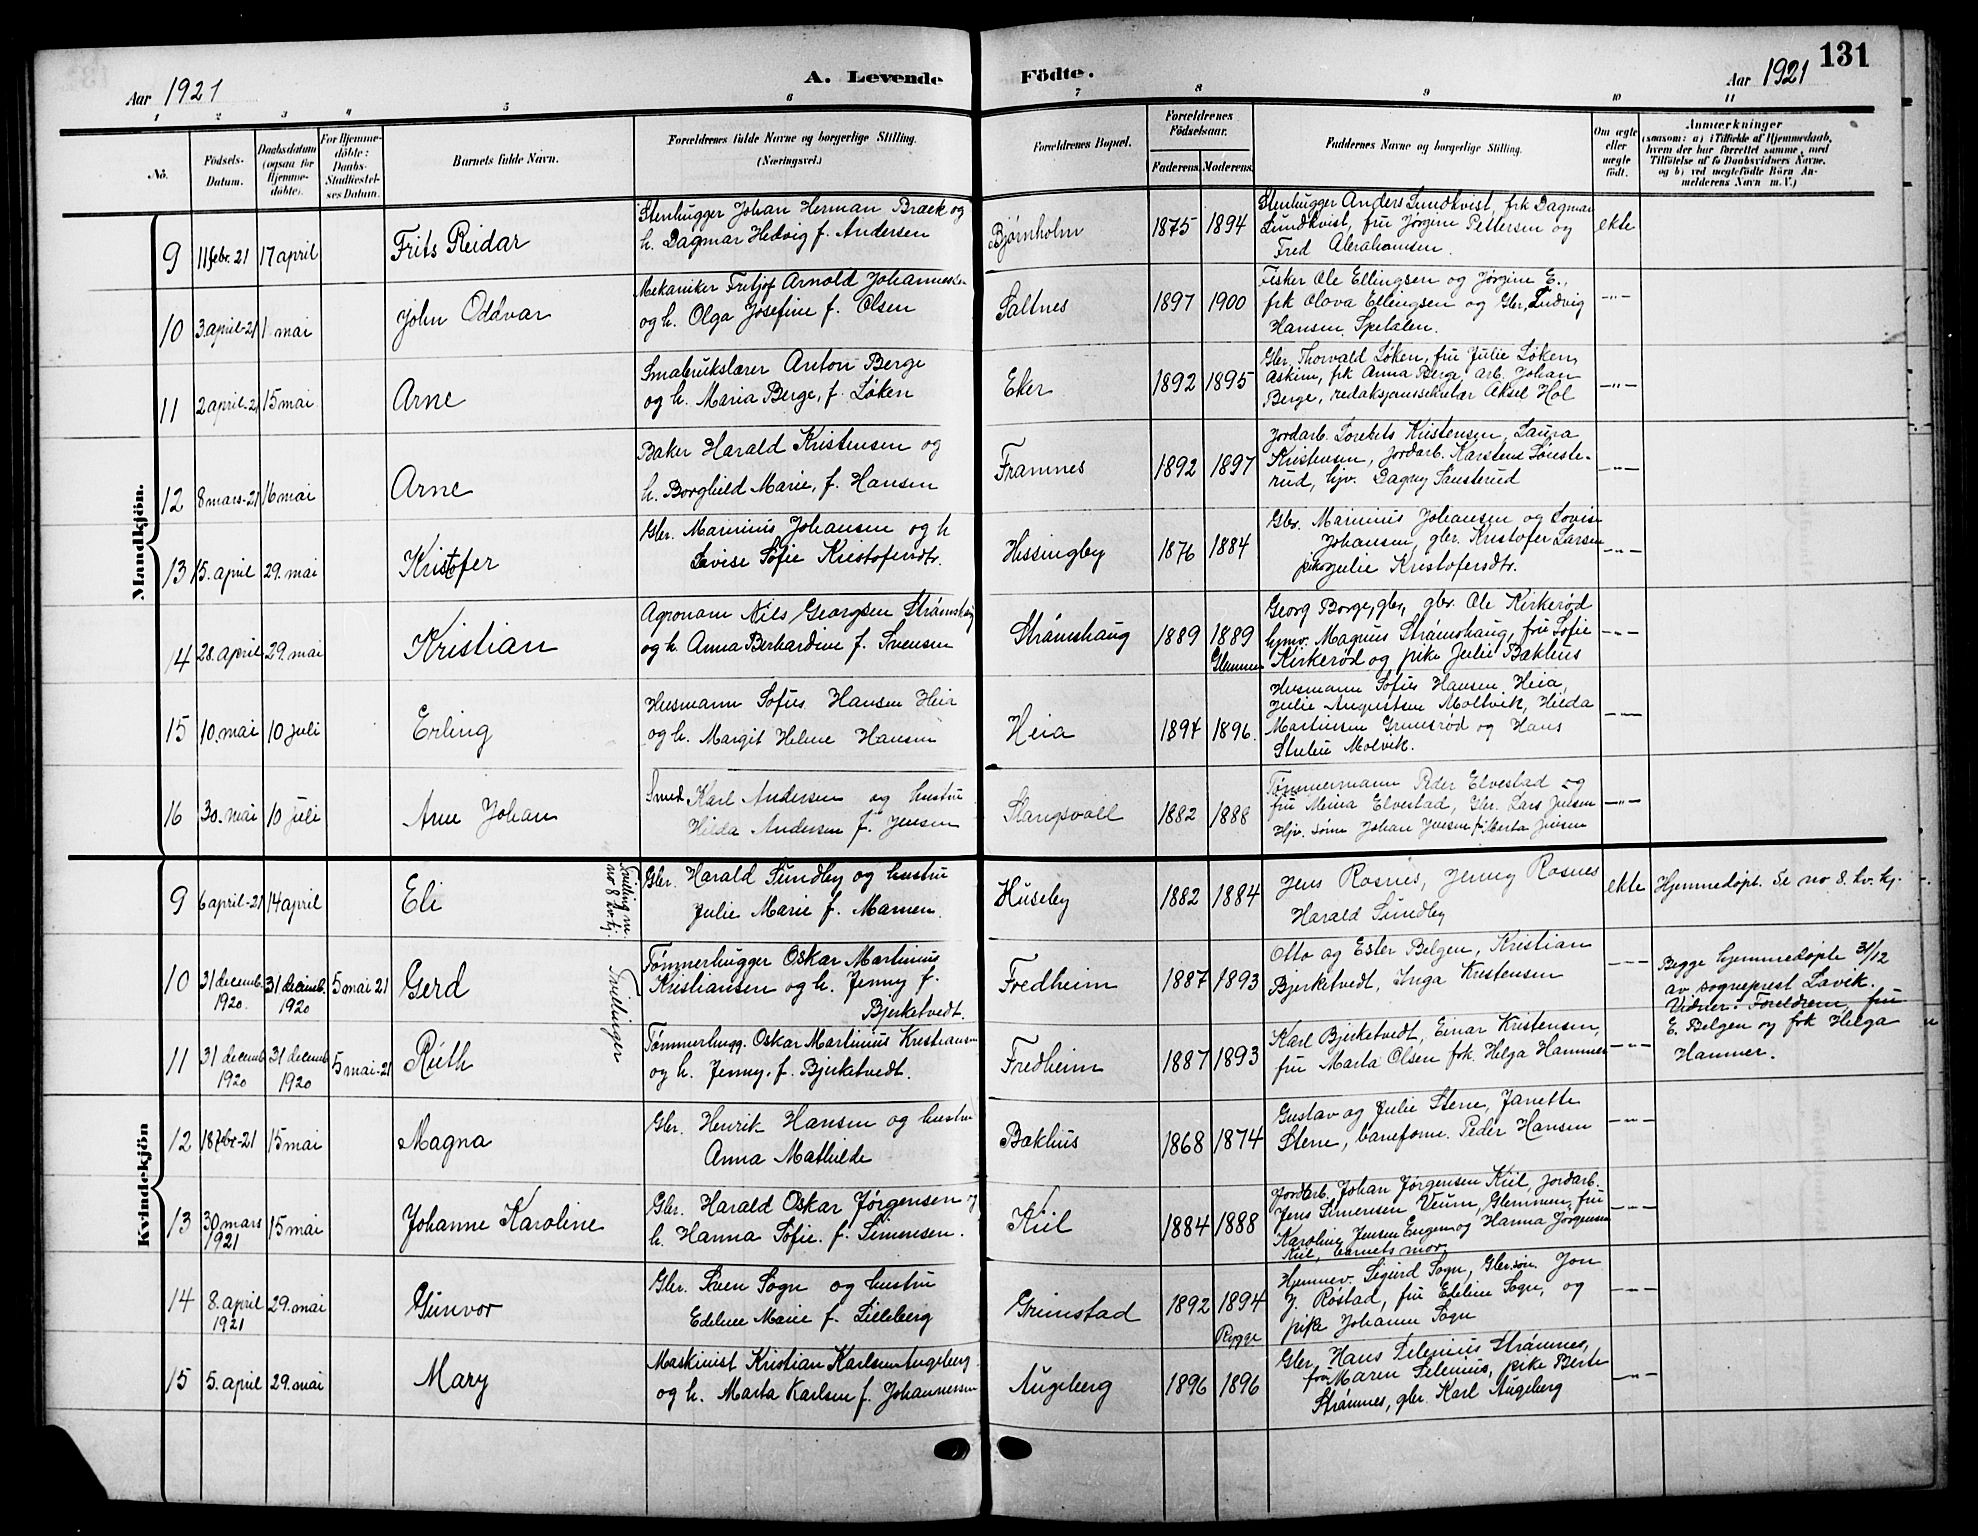 131
Aar 1921
A. Levende Födte.
Aar 1921
1 2 3 4 5 6 7 8 9 10 11
No.
Födsels-Datum.
Daabsdatum (ogsaa for Hjemmedöbte).
For Hjemmedöbte: Daabs Stadfæstelses Datum.
Barnets fulde Navn.
Forældrenes fulde Navne og borgerlige Stilling. (Næringsvei.)
Forældrenes Bopæl.
Forældrenes Födselsaar.
Faderens.
Moderens.
Faddernes Navne og borgerlige Stilling.
Om ægte eller uægte födt.
Anmærkninger
(saasom: a) i Tilfælde af Hjemmedaab, hvem der har forrettet samme, med Tilföielse af to Daabsvidners Navne, og b) ved uægtefödte Börn Anmelderens Navn m. V.)
Mandkjön.
9 11 febr. 21 17 april Frits Reidar
Stenhugger Johan Herman Bræk og
h. Dagmar Hedvig f. Andersen
Bjørnholm 1875 1894
Stenhugger Anders Sundkvist, frk Dagmar
Sundkvist, fru Jørgine Pettersen og
Fred Abrahamsen.
ekte
10 3 april-21 1 mai John Oddvar
Mekaniker Fritjof Arnold Johannessen
og h. Olga Josefine f. Olsen
Saltnes 1897 1900
Fisker Ole Ellingsen og Jørgine E.,
frk Olova Ellingsen og Gbr. Ludvig
Hansen Spetalen.
-"-
11 2 april-21 15 mai Arne
Småbrukslærer Anton Berge
og h. Maria Berge, f. Løken
Eker 1892 1895
Gbr. Thorvald Løken, fru Julie Løken,
Askim, frk Anna Berge arb. Johan
Berge, redaksjonssekretær Aksel Hol
-"-
12 8 mars-21 16 mai Arne
Baker Harald Kristensen og
h. Borghild Marie, f. Hansen
Framnes 1892 1897
Jordarb. Lorents Kristensen, Laura
Kristensen, jordarb. Karsten Sønste-
rud, hjv. Dagny Sønsterud
-"-
13 15. april 29. mai Kristofer
Gbr. Marinius Johansen og h
Lovise Sofie Kristofersdtr.
Hissingby 1876 1884
Gbr. Marinius Johansen og Lovise
Johansen, gbr. Kristofer Larsen
pike Julie Kristofersdtr.
-"-
14 28. april 29. mai Kristian
Agronom Nils Georgsen Strømshaug
og h. Anna Berhardine f. Svensen
Strømshaug 1889 1889
Glemmen
Georg Borge, gbr, gbr. Ole Kirkerød
hjmv. Magnus Strømshaug, fru Sofie
Kirkerød og pike Julie Bakhus
-"-
15 10. mai 10 juli Erling
Husmann Sofus Hansen Heia
og h. Margit Helene Hansen
Heia 1894 1896.
Husmann Sofus Hansen Heia,
Julie Augustsen Moltvik, Hilda
Martinsen Grimsrød og Hans
Molvik.
-"-
16 30. mai 10 juli Arne Johan
Smed Karl Andersen og hustru
Hilda Andersen f. Jensen
Slangsvold 1882 1888
Tømmermann Peder Elvestad og
fru Mina Elvestad, Gbr. Lars Jensen
Hjv. sønn Johan Jensen pi. Marta Jensen
-"-
Kvindekjön
9 6 april-21 14 april Eli
Tvilling m. no 8 kv. kj.
Gbr. Harald Sundby og hustru
Julie Marie f. Mamen.
Huseby 1882 1884
Jens Rosnes, Jenny Rosnes
Harald Sundby
ekte
Hjemmedøpt. Se no 8. kv. kj.
10 31 decemb. 1920. 31 decemb. 1920 5 mai 21 Gerd
Tvillinger
Tømmerhugger Oskar Martinius
Kristiansen og h. Jenny f.
Bjerketvedt.
Fredheim 1887 1893
Otto og Ester Belgen, Kristian
Bjerketvedt, Inga Kristensen
-"-
Begge hjemmedøpte 31/12
av sogneprest Lavik.
Vidner: Foreldrene, fru
E. Belgen og frk Helga
Hammer.
11 31 decemb 1920 31 decemb 1920 5 mai-21 Ruth
Tømmerhugg. Oskar Martinius Kristiansen
og h. Jenny. f. Bjerketvedt.
Fredheim 1887 1893
Karl Bjerketvedt, Einar Kristensen,
fru Marta Olsen frk. Helga Hammer
-"-
12 18 febr-21 15 mai Magna
Gbr. Henrik Hansen og hustru
Anna Mathilde
Bakhus 1868 1874
Gustav og Julie Stene, Janette
Stene, baneform. Peder Hansen
-"-
13 30 mars 1921 15 mai Johanne Karoline
Gbr. Harald Oskar Jørgensen og
h. Hanna Sofie. f. Simensen.
Kiil 1884 1888
Jordarb. Johan Jørgensen Kiil, jordarb.
Jens Simensen Veum, Glemmen, fru
Karoline Jensen Engen og Hanna Jørgensen
Kiil, barnets mor.
-"-
14 8. april 1921 29. mai Gunvor
Gbr. Søren Sogn og hustru
Edeline Marie f. Lilleberg
Grimstad 1892 1894
Rygge
Hjemmev. Sigurd Sogn, Gbr.søn Jon
J. Røstad, fru Edeline Sogn, og
pike Johanne Sogn
-"-
15 5. april 29. mai Mary
Maskinist Kristian Karlsen Augeberg
og h. Marta Karlsen f. Johannessen
Augeberg 1896 1896
Gbr. Hans Selenius Strømnes,
fru Maren Selenius, pike Berte
Strømnes, gbr. Karl Augeberg
-"-